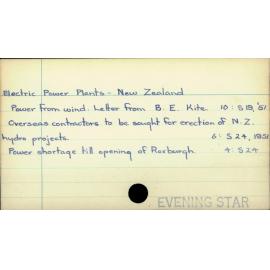 Electric Power Plants - New Zealand
Power from wind. Letter from B. E. Kite. 10: S19, '51
Overseas contractors to be sought for erection of N.Z.
hydro projects. 6: S24, 1951
Power shortage till opening of Roxburgh. 4: S24
EVENING STAR